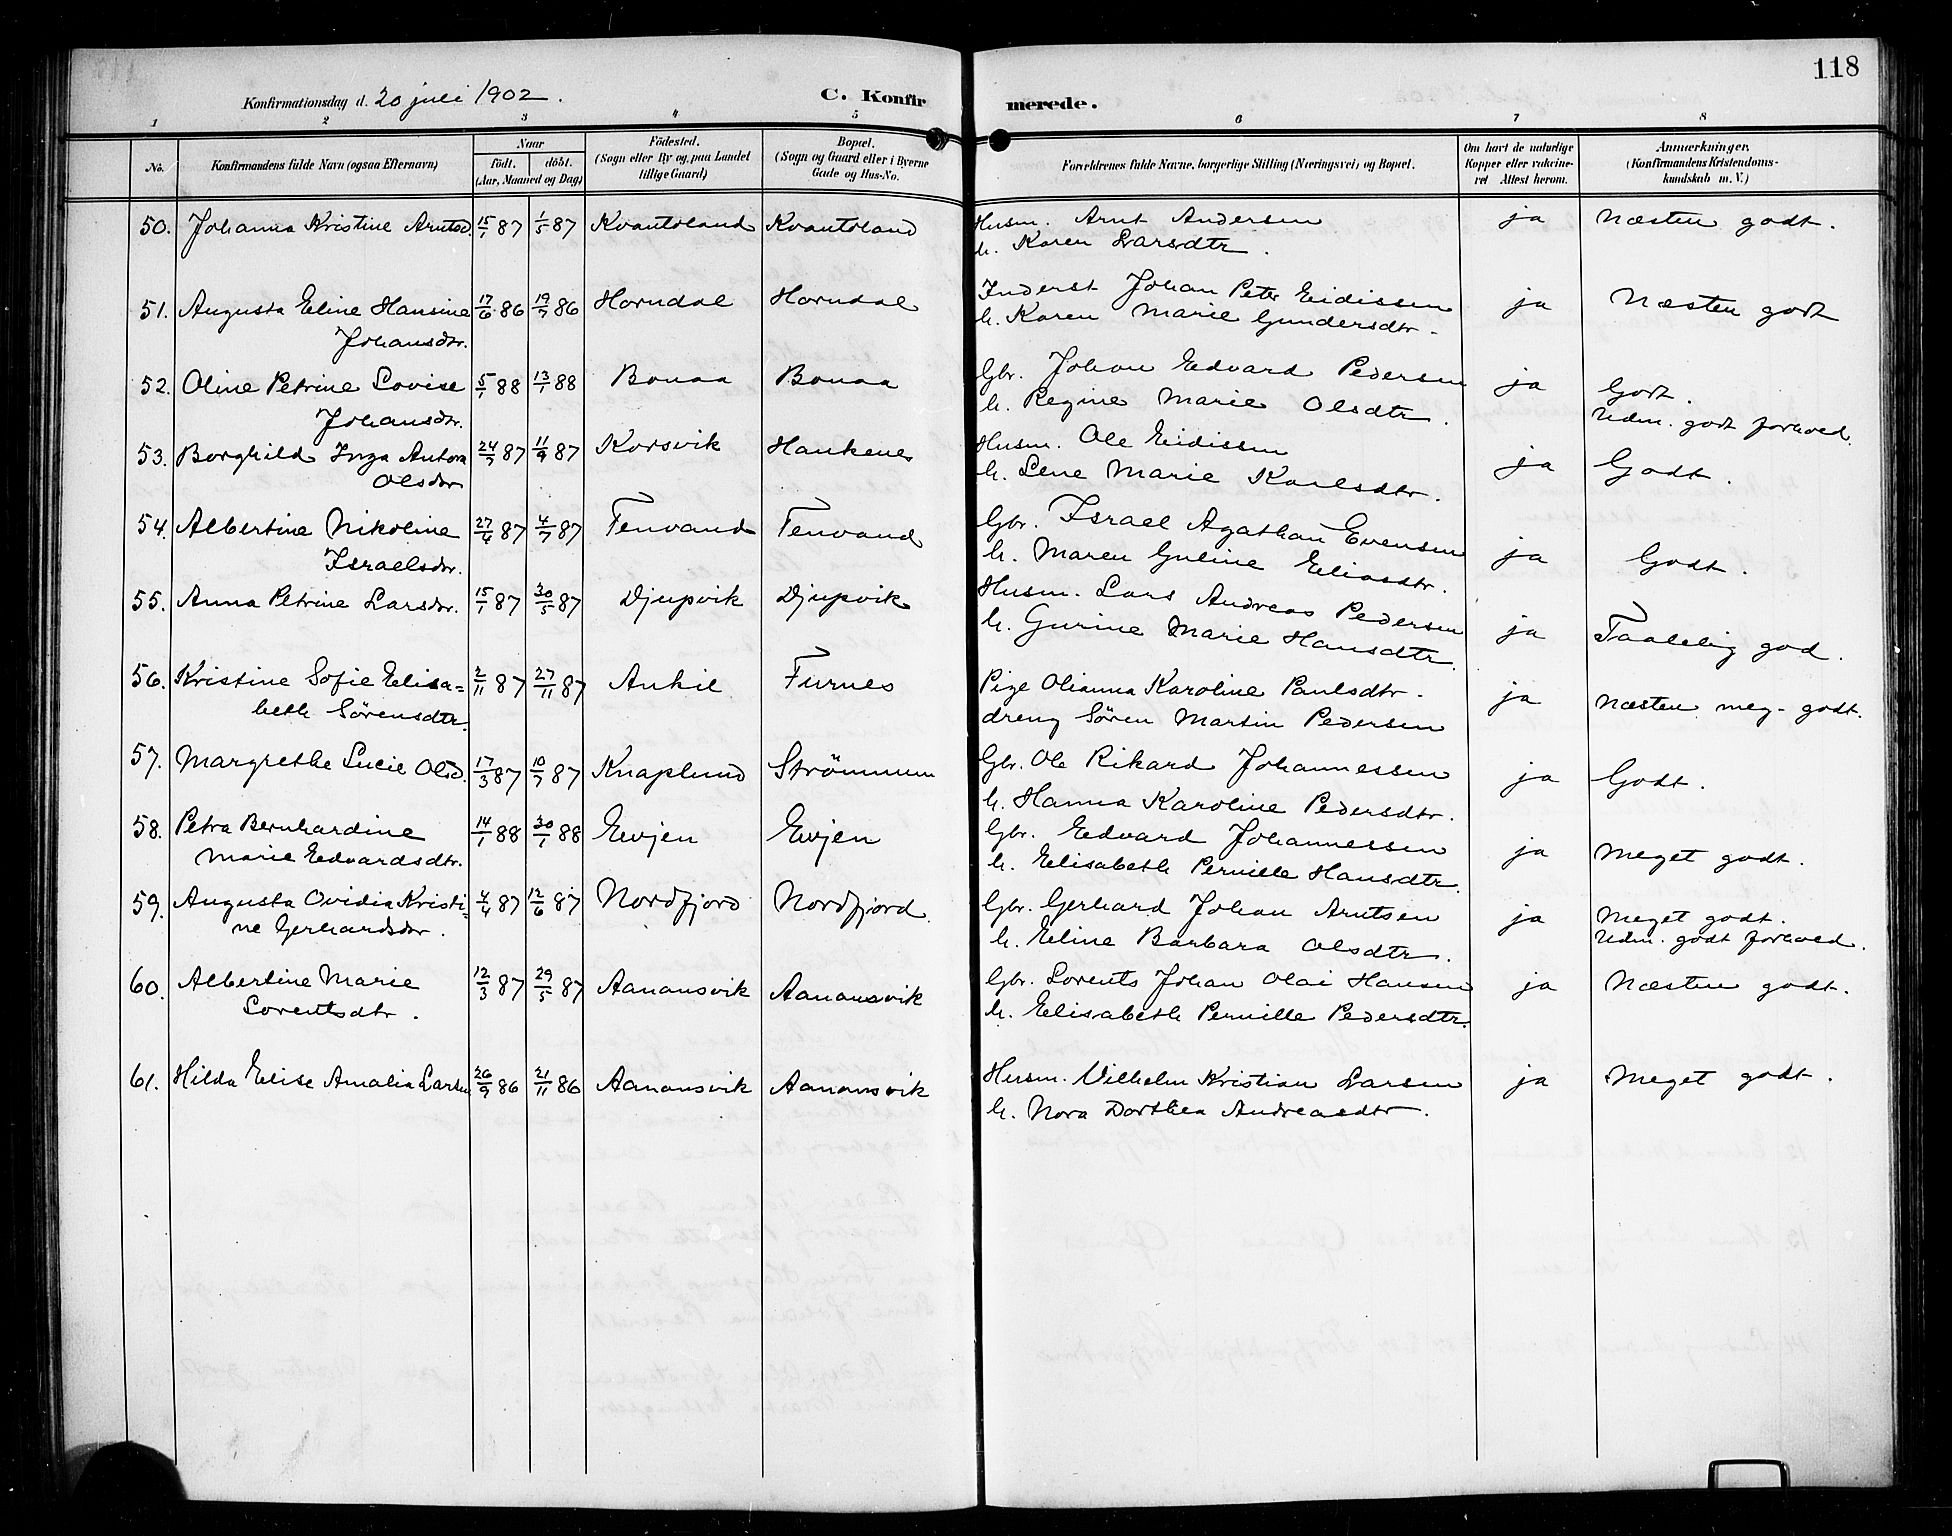 118
Konfirmationsdag d. 20 juli 1902. C. Konfirmerede.
1 2 3 4 5 6 7 8
No. Konfirmandens fulde Navn (ogsaa Efternavn) Naar født. døbt. (Aar, Maaned og Dag) Fødested. (Sogn eller By og, paa Landet tillige Gaard) Bopæl. (Sogn og Gaard eller i Byerne Gade og Hus-No. Forældrenes fulde Navne, borgerlige Stilling (Næringsvei) og Bopæl. Om havt de naturlige Kopper eller vakcineret Attest herom. Anmærkninger. (Konfirmandens Kristendomskundskab m. V.)
50. Johanna Kristine Arntsd. 15/1 87 1/5 87 Kvantoland Kvantoland Husm. Arnt Andersen ja Næsten godt.
h. Karen Larsdtr.
51. Augusta Eline Hansine 17/6 86 19/7 86 Horndal Horndal Inderst Johan Peter Eidissen ja Næsten godt
Johansdtr. h. Karen Marie Gundersdtr.
52. Oline Petrine Lovise 5/1 88 13/1 88 Bonaa Bonaa Gbr. Johan Edvard Pedersen ja Godt.
Johansdtr. h. Regine Marie Olsdtr. Udm. godt forhold.
53. Borghild Inga Antora 24/7 87 11/9 87 Korsvik Hankenes Husm. Ole Eidissen ja Godt.
Olsdtr h. Lene Marie Karlsdtr.
54. Albertine Nikoline 27/4 87 4/7 87 Fenvand Fenvand Gbr. Israel Agathan Evensen ja Godt.
Israelsdtr. h. Maren Guline Eliasdtr.
55. Anna Petrine Larsdtr. 15/1 87 30/5 87 Djupvik Djupvik Husm. Lars Andreas Pedersen ja Taalelig god.
h. Gurine Marie Hansdtr.
56. Kristine Sofie Elisa= 2/11 87 27/11 87 Ankil Furnes Pige Olianna Karoline Paulsdtr. ja Næsten meg. godt.
beth Sörensdtr. dreng Sören Martin Pedersen
57. Margrethe Lucie Olsd. 17/3 87 10/7 87 Knaplund Strömmum Gbr. Ole Rikard Johannessen ja Godt.
h. Hanna Karoline Pedersdtr.
58. Petra Bernhardine 14/1 88 30/1 88 Evjen Evjen Gbr. Edvard Johannessen ja Meget godt.
Marie Edvardsdtr. h. Elisabeth Pernille Hansdtr.
59. Augusta Ovidia Kristi= 4/4 87 12/6 87 Nordfjord Nordfjord. Gbr. Gerhard Johan Arntsen ja Meget godt.
ne Gerhardsdtr. h. Eline Barbara Olsdtr. Udm. godt forhold.
60. Albertine Marie 12/3 87 29/5 87 Aanansvik Aanansvik Gbr. Lorents Johan Olai Hansen ja Næsten godt.
Lorentsdtr. h. Elisabeth Pernille Pedersdtr.
61. Hilda Elise Amalia Larsen 26/9 86 21/11 86 Aanansvik Aanansvik Husm. Vilhelm Kristian Larsen ja Meget godt.
h. Nora Dorthea Andreasdtr.